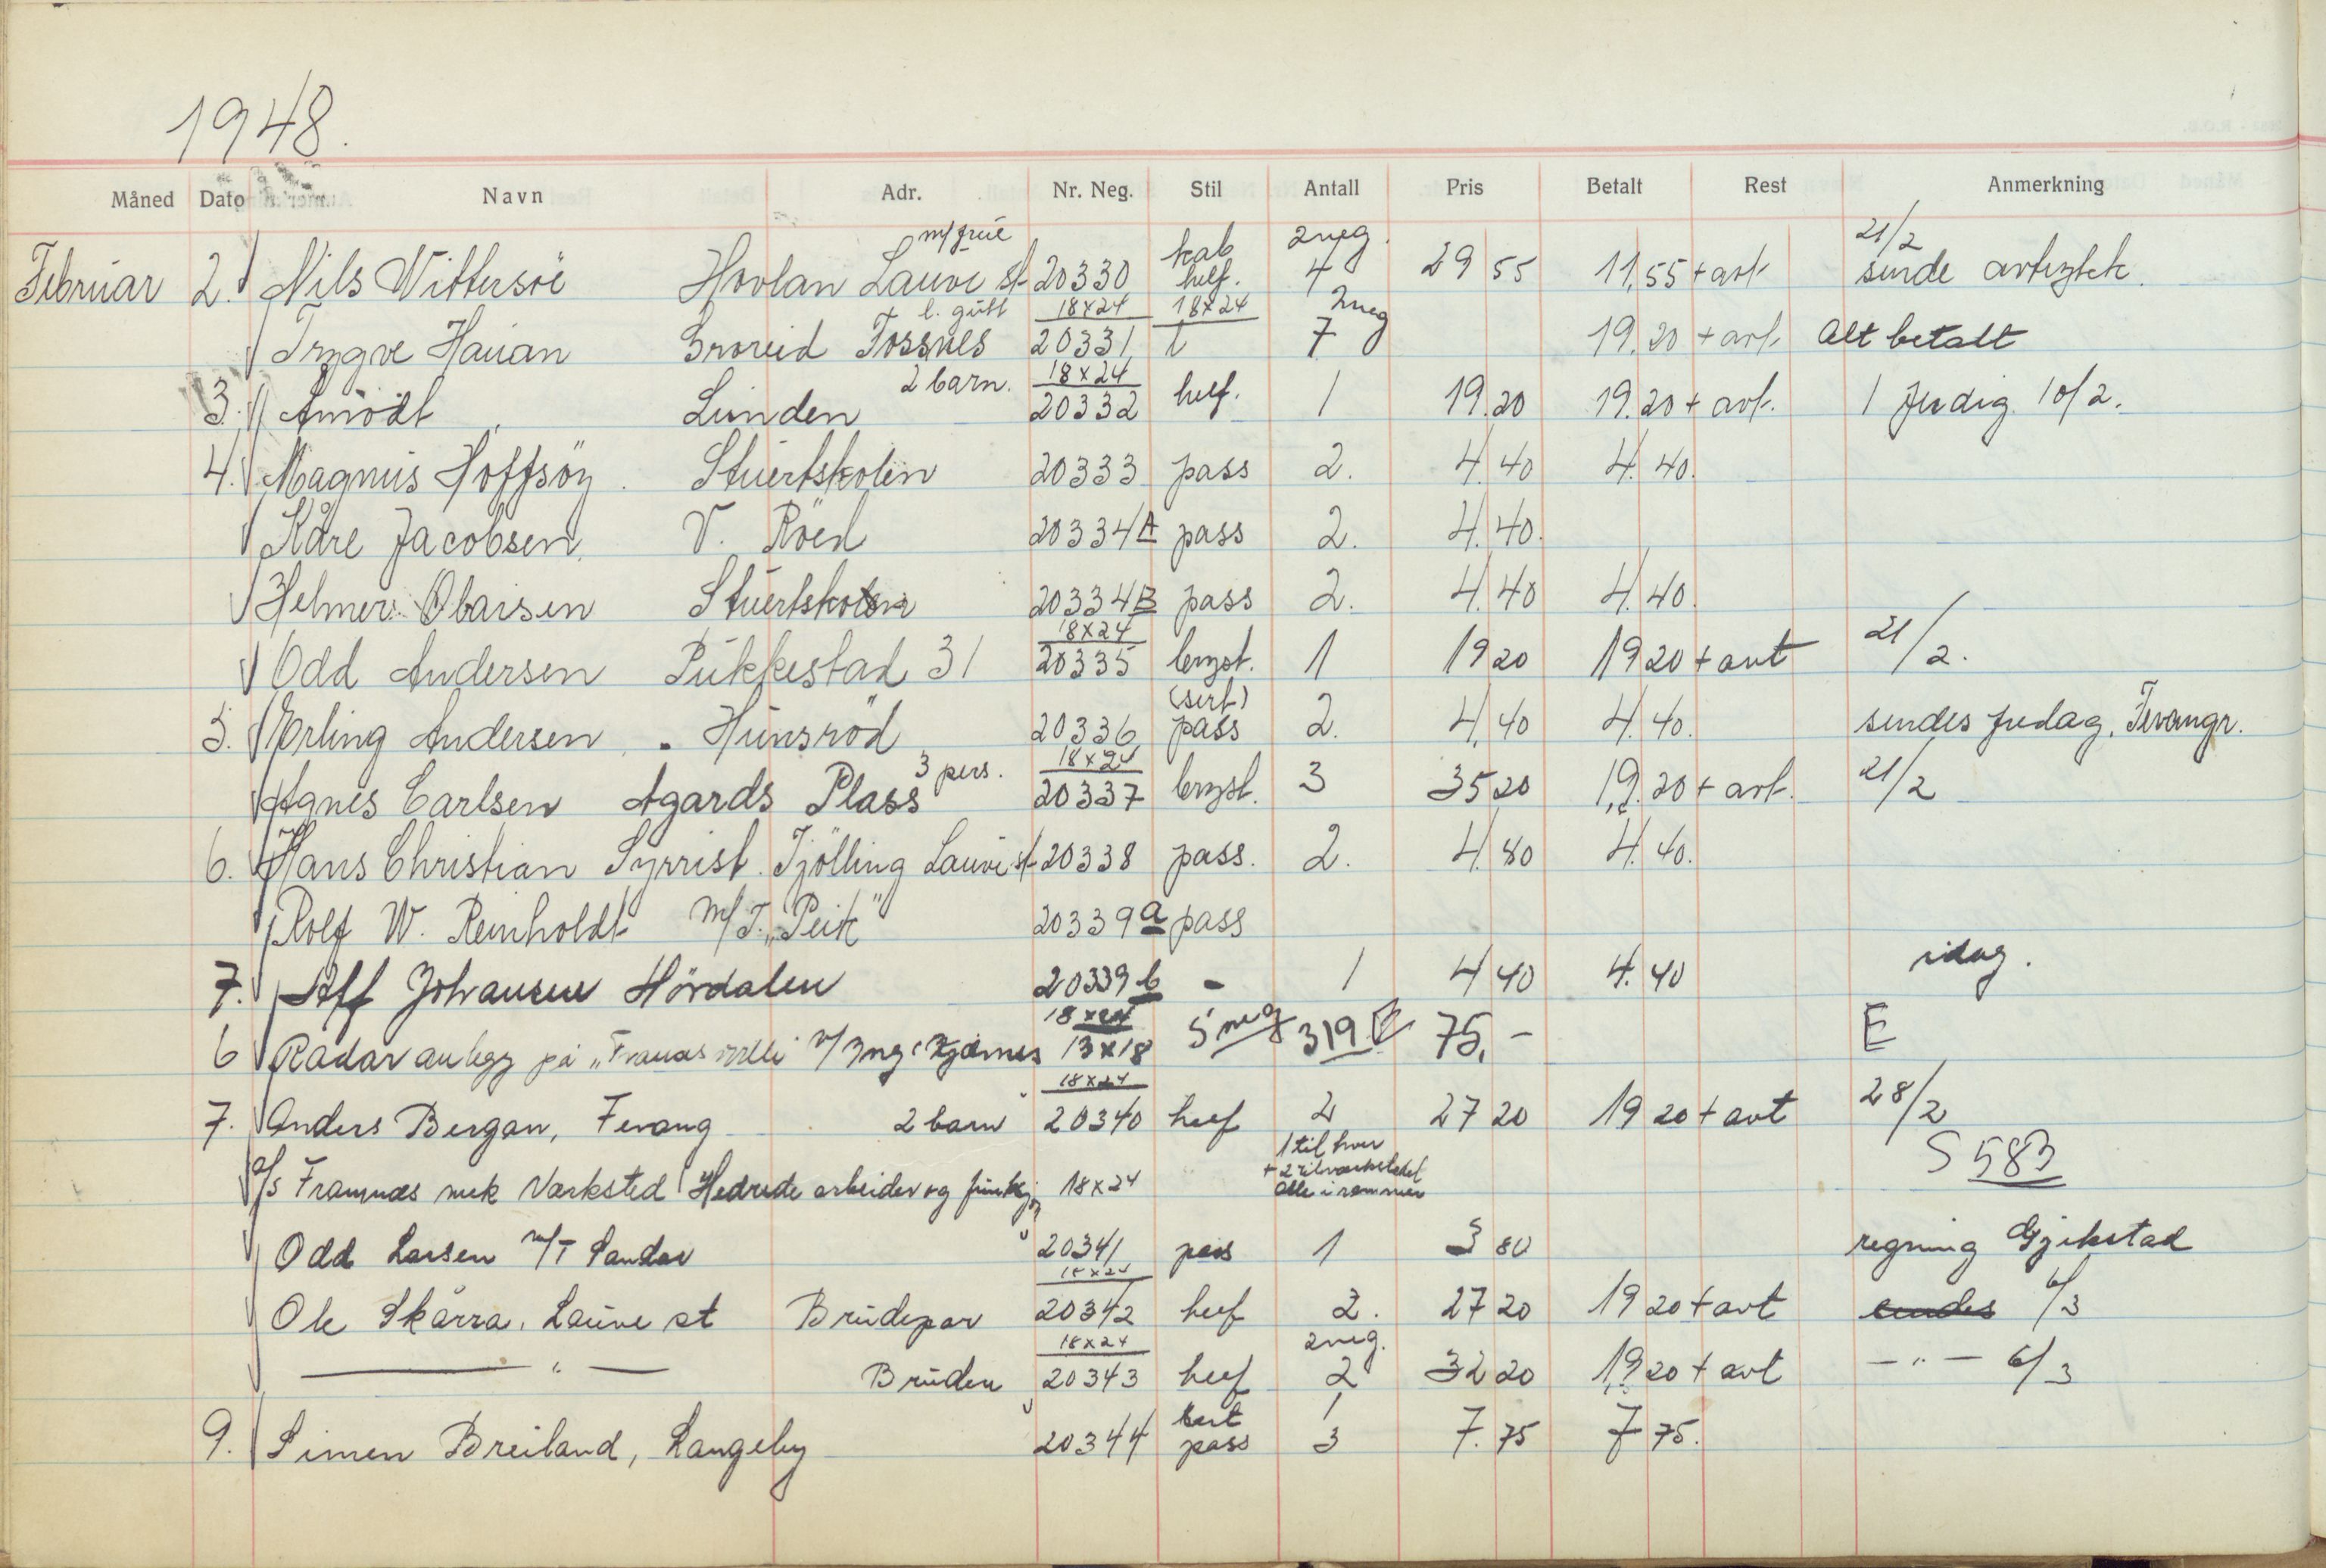 1948.
Måned Dato Navn Adr. Nr. Neg. Stil Antall Pris Betalt Rest Anmerkning
m/frue kab 2 neg. 21/2
Februar 2. Nils Wittersöe Hovlan Lauve st 20330 helf. 4 29 55 11,55 + avt.
l. gutt 18x24 18x24 2 neg
Trygve Hauan Broreid Fossnes 20331 7 19.20 + avt. Alt betalt
2 barn. 18x24
3. Amödt Lunden 20332 helf. 1 19.20 19.20 + avt. 10/2.
4. Magnus Hoffsöy Stuertskolen 20333 pass 2. 4.40 4.40.
Kåre Jacobsen V. Röed 20334A pass 2. 4.40.
Helmer Stuertskolen 20334B pass 2. 4.40 4.40.
18x24
Odd Andersen Pukkestad 31 20335 bryst. 1 19 20 19 20 + avt 21/2.
(sert)
5. Erling Andersen Hunsröd 20336 pass 2. 4,40 4.40. sendes fredag,
3 pers. 18x24
Agnes Carlsen Agards Plass 20337 bryst. 3 35 20 19.20 + avt. 21/2
6. Hans Christian Syrrist. Tjölling Lauve st 20338 pass. 2. 4.80 4.40.
Rolf W. Reinholdt M/T. „Peik" 20339a pass
7. Alf Johansen Hördalen 20339b - 1 4 40 4.40 idag.
18x24
6 Radaranlegg på v/Ing. 13x18 5 neg 319 E 75,- E
18x24
7. Anders Bergan, Fevang 2 barn 20340 helf 2 27 20 19 20 + avt 28/2
1 til hver
+ 2 til verkstedet
A/S Framnæs mek Værksted Hedrede arbeider og funksj 18x24 Alle i rammer S 583
Odd Larsen M/T Sandar 20341 pass 1 3 80 regning Gjekstad
18x24
Ole Skårra, Lauve st Brudepar 20342 helf 2. 27 20 19 20 + avt sendes 6/3
18x24 2 neg.
— " — Bruden 20343 helf 2 32 20 19 20 + avt — " — 6/3
sert 1
9. Simen Breiland, Langeby 20344 pass 3 7.75 7 75.